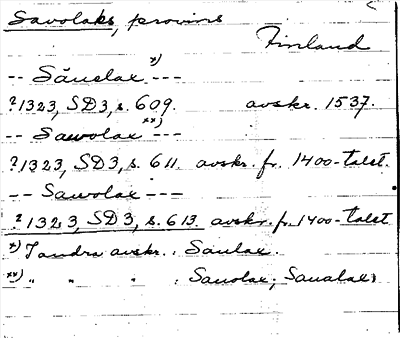 Savolaks, provins
Finland
-- Säuelax *) ---
? 1323, SD3, s. 609. avskr. 1537.
-- Sawolax **) ---
? 1323, SD3, s. 611. avskr. fr. 1400-talet.
-- Sawolax ---
? 1323, SD3, s. 613. avskr. fr. 1400-talet
*) Jandra avskr.: Saulax.
**) " " " : Sauolax; Saualax;